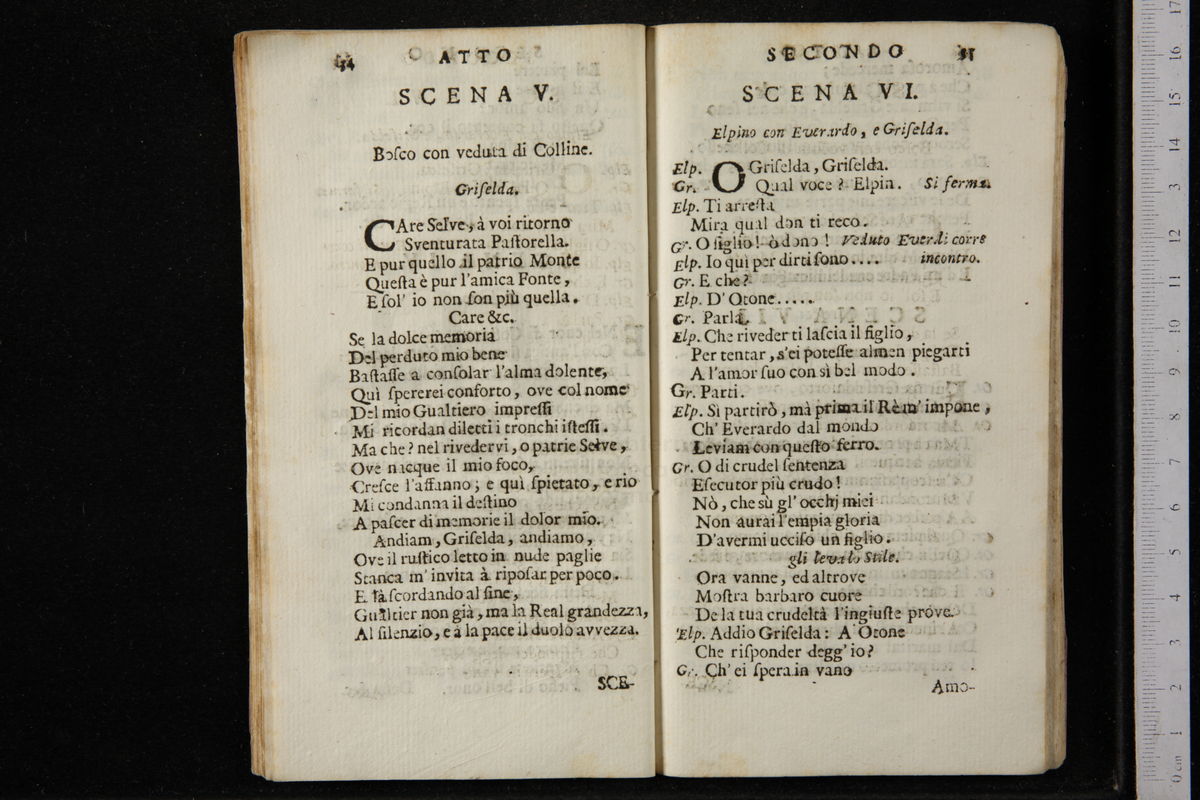 34 ATTO
SCENA V.
Bosco con veduta di Colline.
Griselda.
CAre Selve, à voi ritorno
Sventurata Pastorella.
E pur quello il patrio Monte
Questa è pur l'amica Fonte,
E sol' io non son più quella.
Care &c.
Se la dolce memoria
Del perduto mio bene
Bastasse a consolar l'alma dolente,
Quì spererei conforto, ove col nome
Del mio Gualtiero impressi
Mi ricordan diletti i tronchi istessi.
Ma che? nel rivedervi, o patrie Selve,
Ove nacque il mio foco,
Cresce l'affanno; e quì spietato, e rio
Mi condanna il destino
A pascer di memorie il dolor mio.
Andiam, Griselda, andiamo,
Ove il rustico letto in nude paglie
Stanca m' invita à riposar per poco.
E là scordando al fine,
Gualtier non già, ma la Real grandezza,
Al silenzio, e à la pace il duolo avvezza.
SCE-
SECONDO
SCENA VI.
Elpino con Everardo, e Griselda.
Elp. O Griselda, Griselda.
Gr. Qual voce? Elpin. Si ferma.
Elp. Ti arresta
Mira qual don ti reco.
Gr. O figlio! ò dono! Veduto Everdi corre
Elp. Io quì per dirti sono.... incontro.
Gr. E che?
Elp. D' Otone.....
Gr. Parla.
Elp. Che riveder ti lascia il figlio,
Per tentar, s'ei potesse almen piegarti
A l'amor suo con sì bel modo.
Gr. Parti.
Elp. Sì partirò, mà prima il Rè m' impone,
Ch' Everardo dal mondo
Leviam con questo ferro.
Gr. O di crudel sentenza
Esecutor più crudo!
Nò, che sù gl' occhj miei
Non aurai l'empia gloria
D'avermi ucciso un figlio.
gli leva lo Stile.
Ora vanne, ed altrove
Mostra barbaro cuore
De la tua crudeltà l'ingiuste prove.
Elp. Addio Griselda: A Otone
Che risponder degg' io?
Gr. Ch' ei spera in vano
Amo-